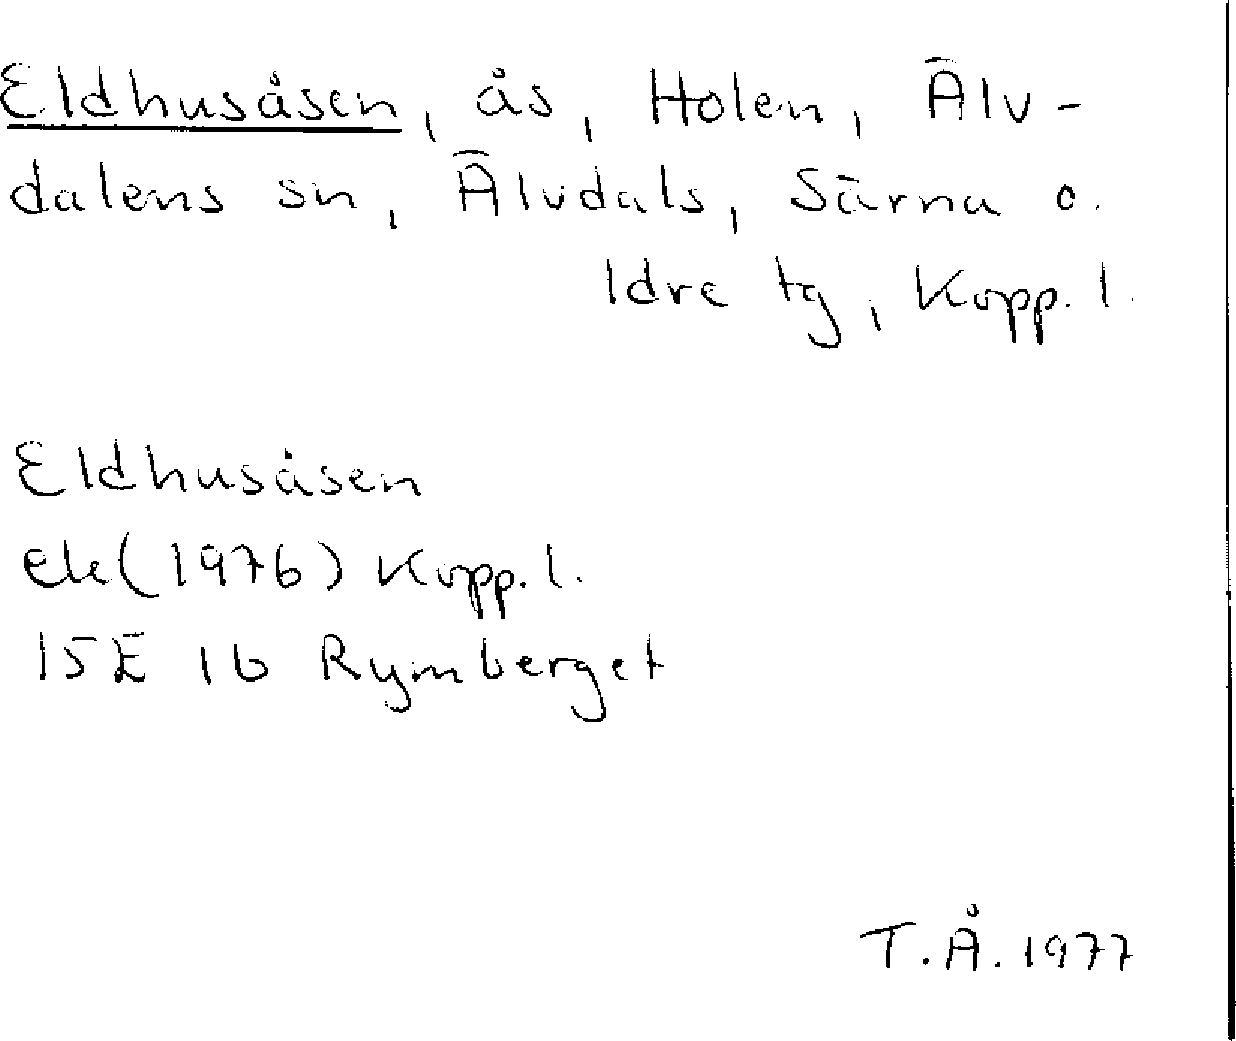 Eldhusåsen, ås, Holen, Älv-
dalens sn, Älvdals, Särna o.
Idre tg, Kopp. l.
Eldhusåsen
ek (1976) Kopp. l.
15E 1b Rymberget
T.Å. 1977